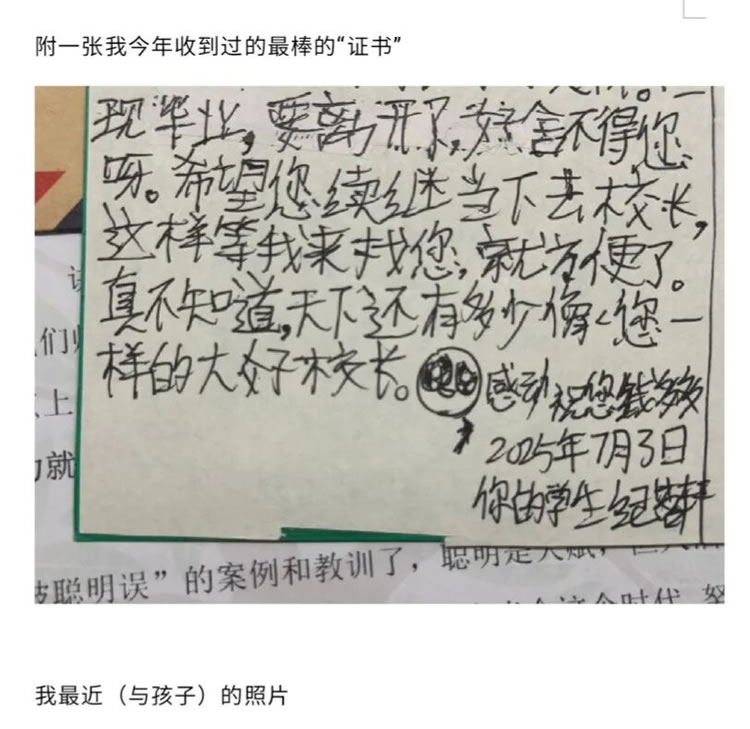 附一张我今年收到过的最棒的“证书”
现毕业，要离开了，好舍不得您
呀。希望您续继当下去校长，
这样等我来找您，就方便了。
真不知道，天下还有多少像您一
样的大好校长。
感动 祝您钱多多
2025年7月3日
你的学生
们
上
力就
被聪明误”的案例和教训了，聪明是天赋，
我最近（与孩子）的照片